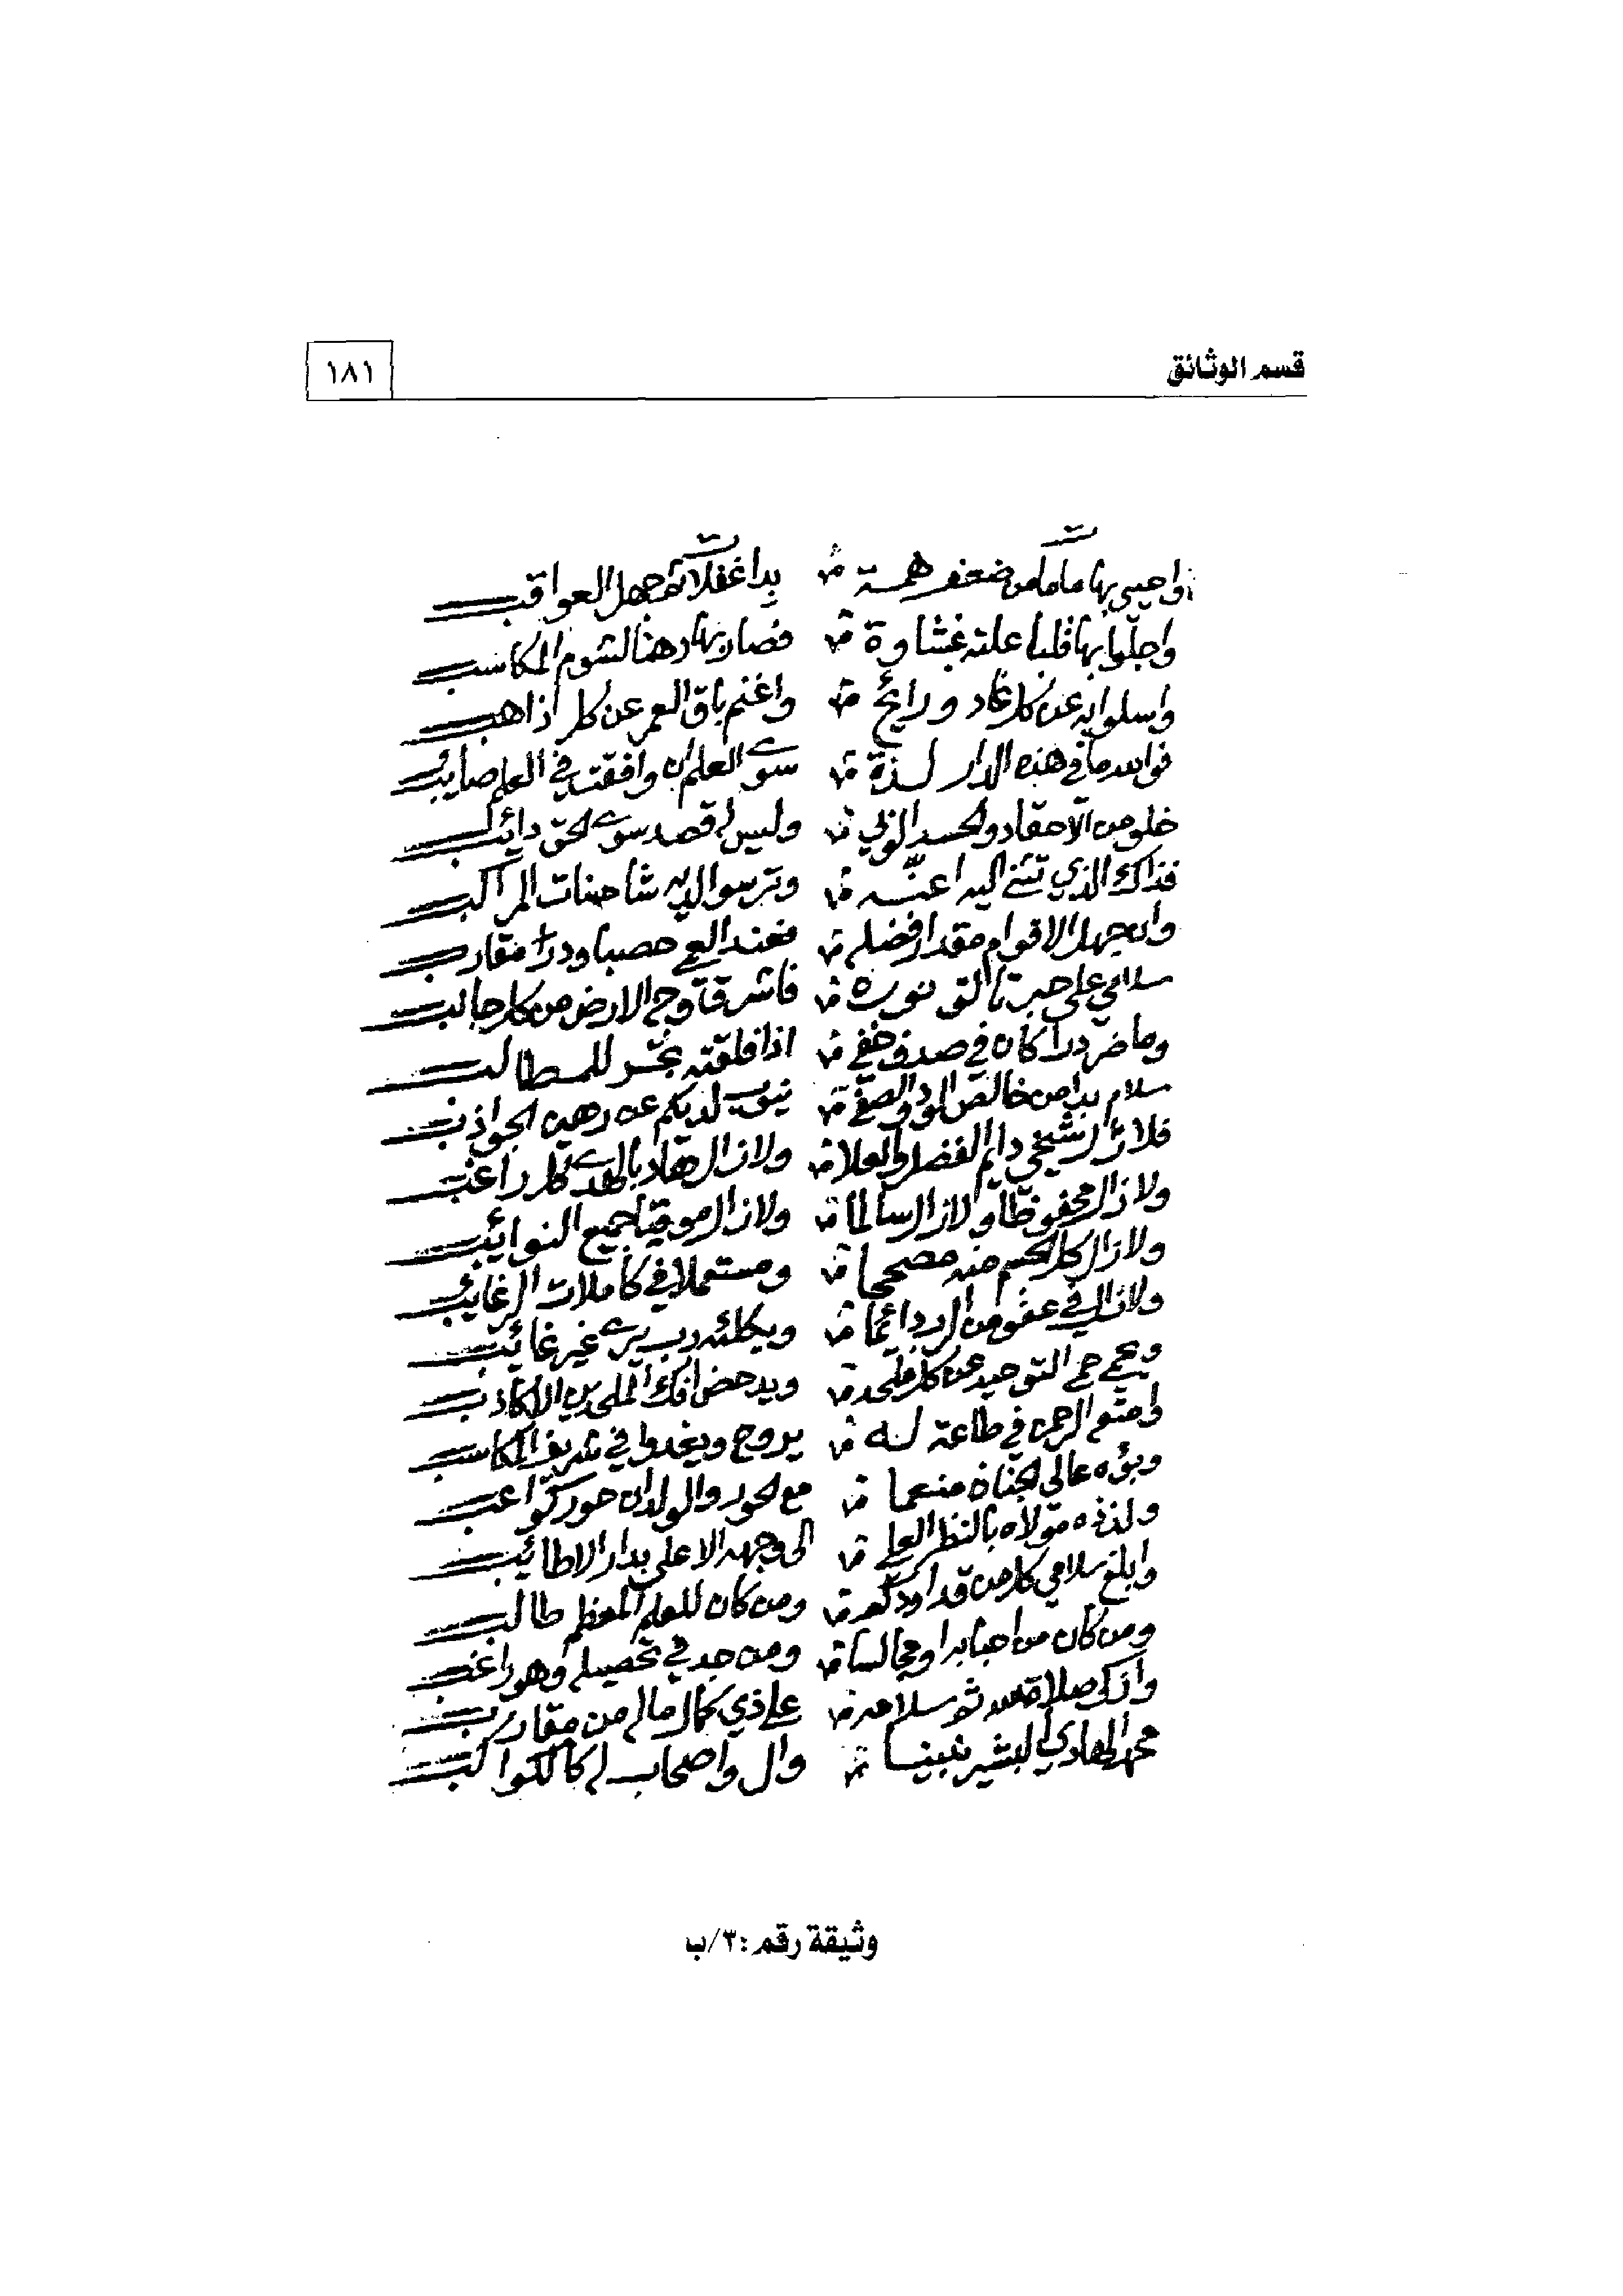 قسم الوثائق ١٨١
واحيى بها ما مات من ضعف همة بدا غفلات جهل العواقب
واجلوا بها قلبا علته غشاوة فصار بها رهنا لشوم المكاسب
واسلوا به عن كل غاد ورايح واغنم باق العمر عن كل ذاهب
فوالله ما في هذه الدار لذة سوى العلم ان وافقت في العلم صايب
خلو من الاحقاد والحسد الوبي وليس له قصد سوى الحق دائب
فذاك الذي تثنى اليه اعنه وترسوا لديه شاحنات المراكب
وان جهل الاقوام مقدار فضله فعند العمى حصبا ودر مقارب
سلامي على حبر تالق نوره فاشرقتا وجه الارض من كل جانب
وما ضر درا كان في صدف خفي اذا فلقته بحر للمطالب
سلام بدا من خالص الود والصفى ينوب لديكم عن رهين الجواذب
فلا زال شيخي دايم الفضل والعلا ولا زال هاد بالهدى كل راغب
ولا زال محفوظا ولا زال سالما ولا زال موقيا جميع النوائب
ولا زال كل الجسم منه مصححا ومستعملا في كاملات الرغايب
ولا زال في عفو من الرب دائما ويكلئه رب يرى غير غائب
ويحمي حمى التوحيد عن كل ملحد ويدحض افك الملحدين الاكاذب
وامتع الرحمن في طاعة له يروح ويغدوا في شريف المكاسب
وبؤه عالى الجنان منعما مع الحور والولدان حور كواعب
ولذذه مولاه بالنظر العلي الى وجهه الاعلى بدار الاطائب
وابلغ سلامي كل من قد اودكم ومن كان للعلم المعظم طالب
ومن كان من احبابه او مجالسا ومن جد في تحصيله وهو راغب
وازكى صلاة الله ثم سلامه على ذي كمال ماله من مقارب
محمد الهادي البشير نبينا وال واصحاب له كالكواكب
وثيقة رقم :٣/ب